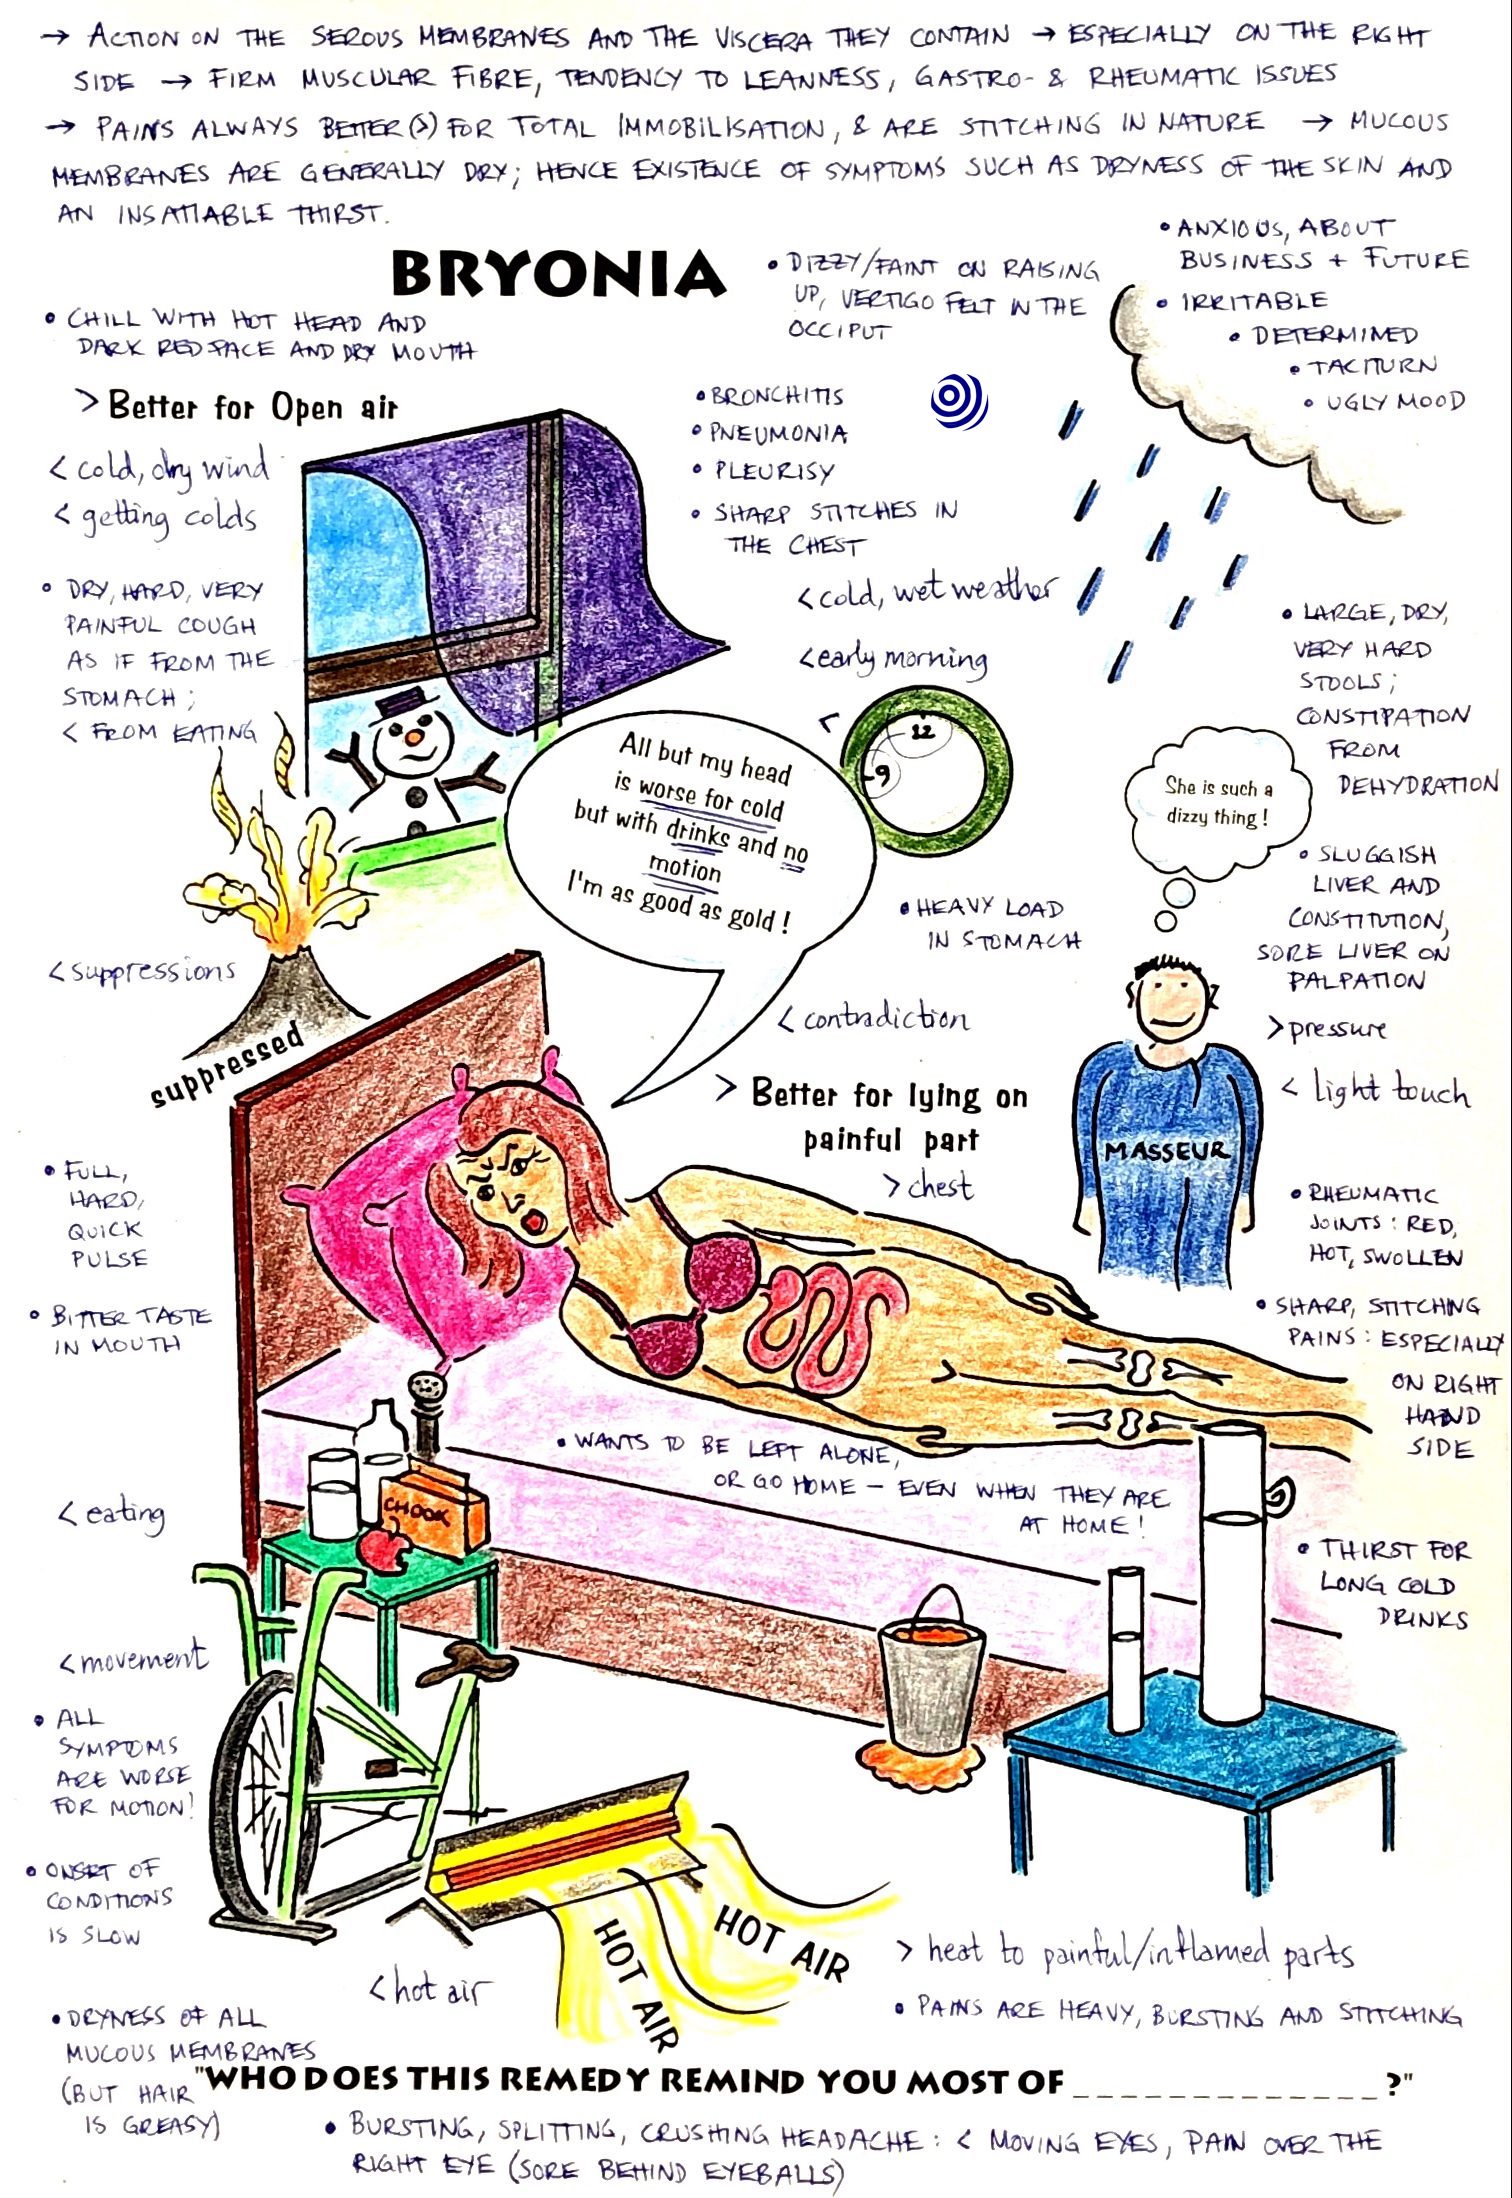 → ACTION ON THE SEROUS MEMBRANES AND THE VISCERA THEY CONTAIN → ESPECIALLY ON THE RIGHT
SIDE → FIRM MUSCULAR FIBRE, TENDENCY TO LEANNESS, GASTRO- & RHEUMATIC ISSUES
→ PAINS ALWAYS BETTER (>) FOR TOTAL IMMOBILISATION, & ARE STITCHING IN NATURE → MUCOUS
MEMBRANES ARE GENERALLY DRY; HENCE EXISTENCE OF SYMPTOMS SUCH AS DRYNESS OF THE SKIN AND
AN INSATIABLE THIRST.
BRYONIA
• DIZZY/FAINT ON RAISING
UP, VERTIGO FELT IN THE
OCCIPUT
• ANXIOUS, ABOUT
BUSINESS + FUTURE
• IRRITABLE
• DETERMINED
• TACITURN
• UGLY MOOD
• CHILL WITH HOT HEAD AND
DARK RED FACE AND DRY MOUTH
> Better for Open air
< cold, dry wind
< getting colds
• BRONCHITIS
• PNEUMONIA
• PLEURISY
• SHARP STITCHES IN
THE CHEST
< cold, wet weather
< early morning
<
12
9
• DRY, HARD, VERY
PAINFUL COUGH
AS IF FROM THE
STOMACH;
< FROM EATING
• LARGE, DRY,
VERY HARD
STOOLS;
CONSTIPATION
FROM
DEHYDRATION
All but my head
is worse for cold
but with drinks and no
motion
I'm as good as gold !
She is such a
dizzy thing !
• SLUGGISH
LIVER AND
CONSTITUTION,
SORE LIVER ON
PALPATION
• HEAVY LOAD
IN STOMACH
< suppressions
suppressed
< contradiction
> pressure
< light touch
> Better for lying on
painful part
> chest
MASSEUR
• FULL,
HARD,
QUICK
PULSE
• RHEUMATIC
JOINTS: RED,
HOT, SWOLLEN
• BITTER TASTE
IN MOUTH
• SHARP, STITCHING
PAINS: ESPECIALLY
ON RIGHT
HAND
SIDE
• WANTS TO BE LEFT ALONE,
OR GO HOME – EVEN WHEN THEY ARE
AT HOME!
< eating
CHOOK
• THIRST FOR
LONG COLD
DRINKS
< movement
• ALL
SYMPTOMS
ARE WORSE
FOR MOTION!
• ONSET OF
CONDITIONS
IS SLOW
HOT AIR
HOT AIR
< hot air
> heat to painful/inflamed parts
• PAINS ARE HEAVY, BURSTING AND STITCHING
• DRYNESS OF ALL
MUCOUS MEMBRANES
(BUT HAIR
IS GREASY)
"WHO DOES THIS REMEDY REMIND YOU MOST OF _ _ _ _ _ _ _ _ _ _ _ _ _ ?"
• BURSTING, SPLITTING, CRUSHING HEADACHE: < MOVING EYES, PAIN OVER THE
RIGHT EYE (SORE BEHIND EYEBALLS)